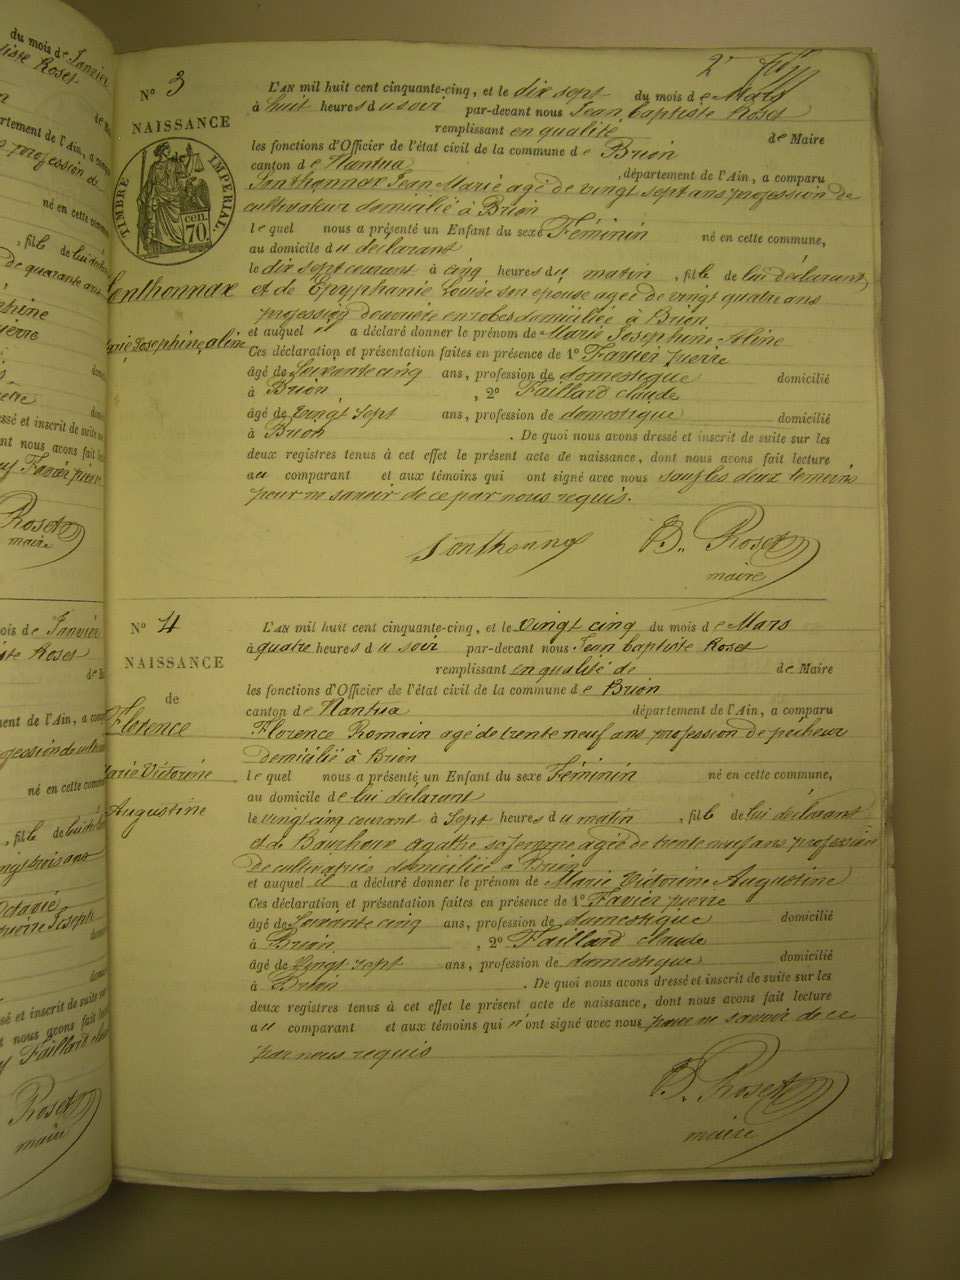 2e
N° 3
NAISSANCE
TIMBRE IMPERIAL
70 cen.
Senthonnax
Marie Josephine aline
L'AN mil huit cent cinquante-cinq, et le dix sept du mois de Mars
à huit heures du soir par-devant nous Jean baptiste Roset
remplissant en qualité de Maire
les fonctions d'Officier de l'état civil de la commune de Brion
canton de Nantua , département de l'Ain, a comparu
Santhonnax Jean Marie agé de vingt sept ans profession de
cultivateur domicilié à Brion
lequel nous a présenté un Enfant du sexe Féminin né en cette commune,
au domicile du declarant
le dix sept courant à cinq heures du matin , fille de lui déclarant,
et de Epyphanie Louise son epouse agée de vingt quatre ans
profession d'ouvrière en robes domiciliée à Brion
et auquel il a déclaré donner le prénom de Marie Josephine Aline
Ces déclaration et présentation faites en présence de 1° Favier pierre
âgé de Soixante cinq ans, profession de domestique domicilié
à Brion , 2° Faillard claude
âgé de Vingt sept ans, profession de domestique domicilié
à Brion . De quoi nous avons dressé et inscrit de suite sur les
deux registres tenus à cet effet le présent acte de naissance, dont nous avons fait lecture
au comparant et aux témoins qui ont signé avec nous sauf les deux temoins
pour ne savoir de ce par nous requis.
Santhonnax B. Roset
maire
N° 4
NAISSANCE
de
Florence
Marie Victorine
Augustine
L'AN mil huit cent cinquante-cinq, et le vingt cinq du mois de Mars
à quatre heures du soir par-devant nous Jean baptiste Roset
remplissant en qualité de de Maire
les fonctions d'Officier de l'état civil de la commune de Brion
canton de Nantua département de l'Ain, a comparu
Florence Romain agé de trente neuf ans profession de pêcheur
Domicilié à Brion
lequel nous a présenté un Enfant du sexe Féminin né en cette commune,
au domicile de lui declarant
le vingt cinq courant à sept heures du matin , fille de lui declarant
et de agathe sa femme agée de trente neuf ans profession
De cultivatrice domiciliée a Brion
et auquel il a déclaré donner le prénom de Marie Victorine Augustine
Ces déclaration et présentation faites en présence de 1° Favier pierre
âgé de Soixante cinq ans, profession de domestique domicilié
à Brion , 2° Faillard claude
âgé de Vingt sept ans, profession de domestique domicilié
à Brion . De quoi nous avons dressé et inscrit de suite sur les
deux registres tenus à cet effet le présent acte de naissance, dont nous avons fait lecture
au comparant et aux témoins qui n'ont signé avec nous pour ne savoir de ce
par nous requis
B. Roset
maire